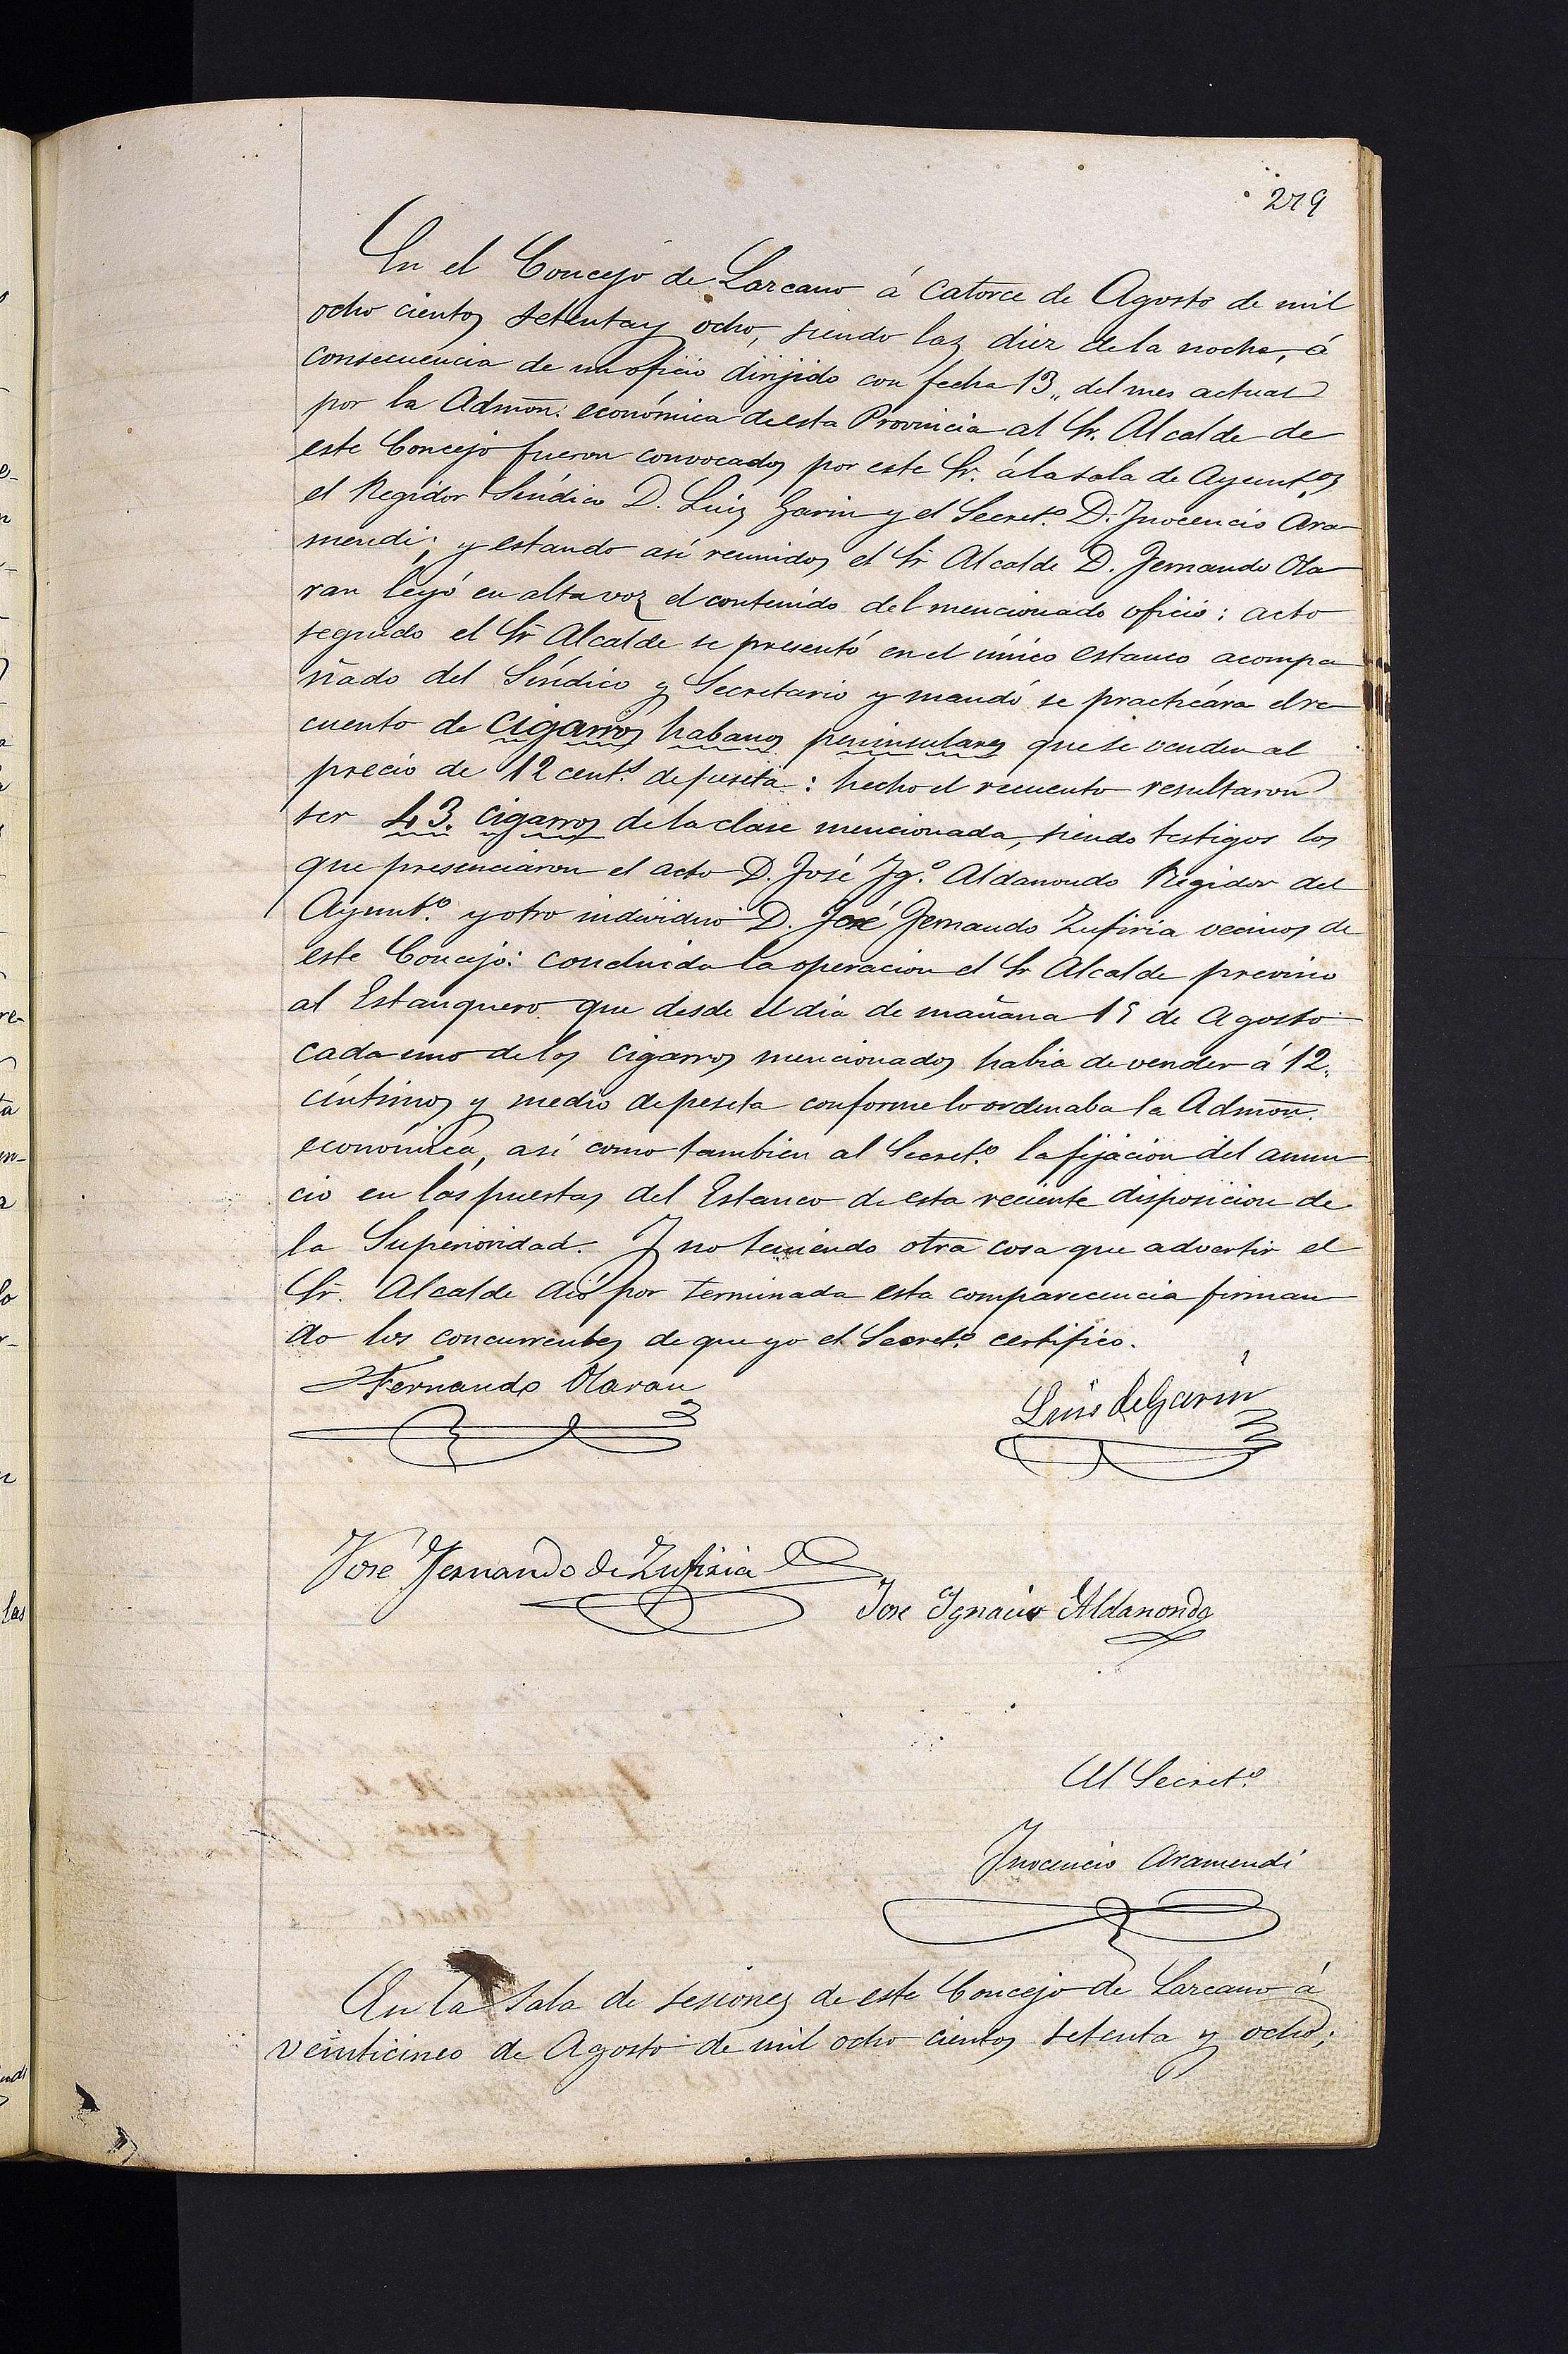 279
En el Concejo de Lazcano á catorce de Agosto de mil
ocho cientos setenta y ocho, siendo las diez de la noche, á
consecuencia de un oficio dirijido con fecha 13,, del mes actual
por la Admon. económica de esta Provincia al Sr. Alcalde de
este Concejo fueron convocados por este Sr. á la sala de Ayunt.os
el Regidor Síndico D. Luis Garin y el Secret.o D. Inocencio Ara
mendi; y estando así reunidos el Sr Alcalde D. Fernando Ola
ran leyó en alta voz el contenido del mencionado oficio: acto
seguido el Sr Alcalde se presentó en el único estanco acompa
ñado del Síndico y Secretario y mandó se practicára el re
cuento de cigarros habanos peninsulares que se venden al
precio de 12 cent.s de peseta: hecho el recuento resultaron
ser 43. cigarros de la clase mencionada, siendo testigos los
que presenciaron el acto D. José Ig.o Aldanondo Regidor del
Ayunt.o y otro individuo D. José Fernando Zufiria vecinos de
este Concejo: concluida la operacion el Sr Alcalde previno
al Estanquero que desde el dia de mañana 15 de Agosto
cada uno de los cigarros mencionados habia de vender á 12.
céntimos y medio de peseta conforme lo ordenaba la Admon.
económica, así como tambien al Secret.o la fijacion del anun
cio en las puertas del Estanco de esta reciente disposicion de
la Superioridad. Y no teniendo otra cosa que advertir el
Sr. Alcalde dió por terminada esta comparecencia firman
do los concurrentes de que yo el Secret.o certifico.
Fernando Olaran
Luis de Garin
José Fernando de Zufiria
Jose Ignacio Aldanondo
El Secret.o
Inocencio Aramendi
En la sala de sesiones de este Concejo de Lazcano á
veinticinco de Agosto de mil ocho cientos setenta y ocho;